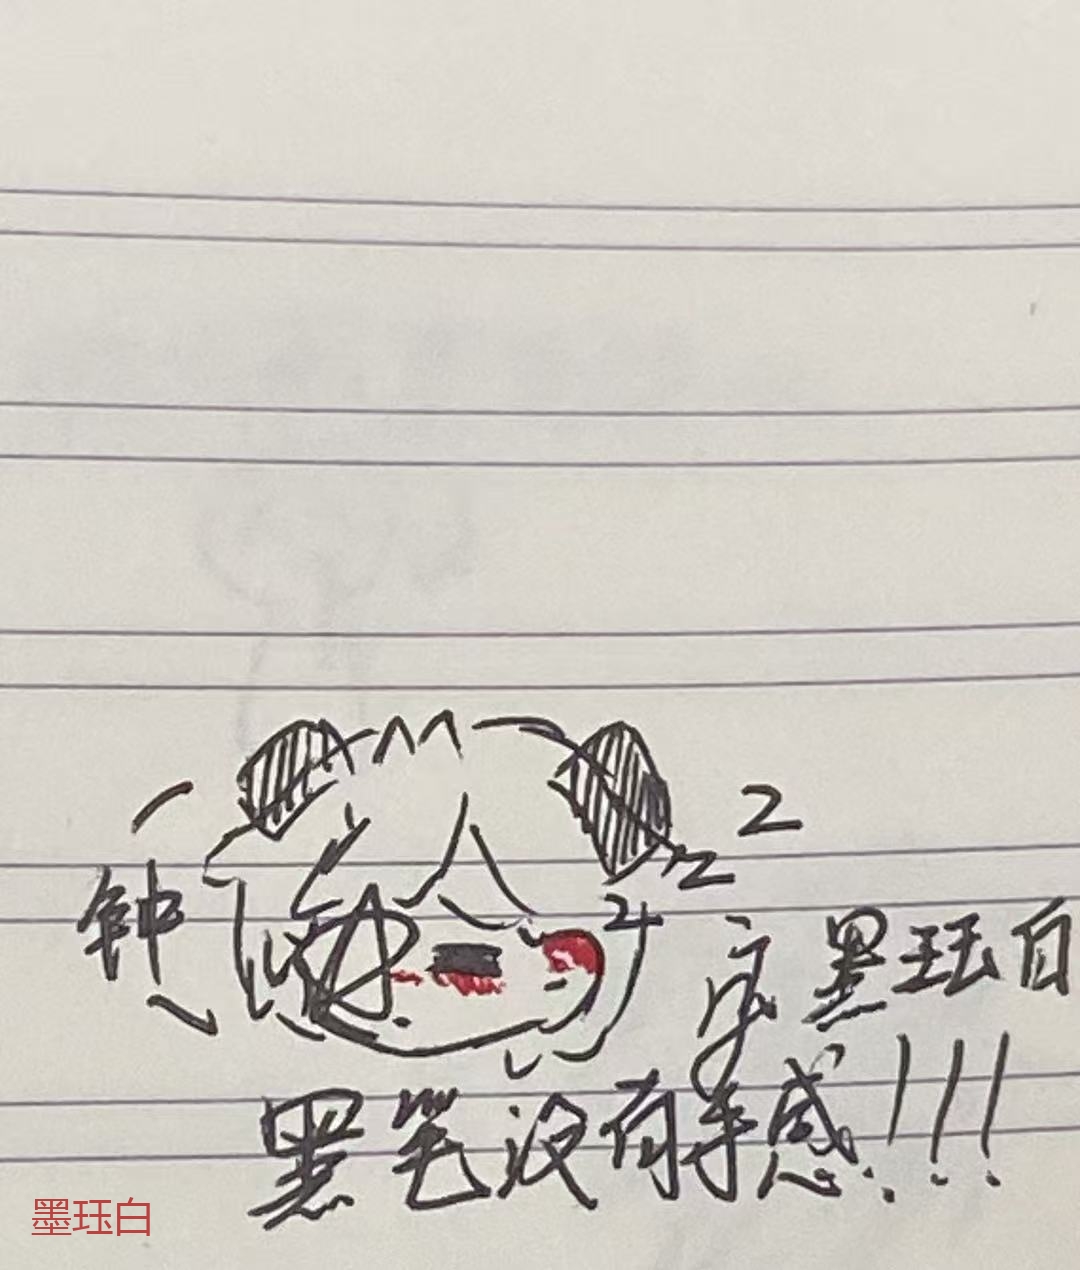 z
z
z
钟
墨珏白
黑笔没有手感!!!
墨珏白